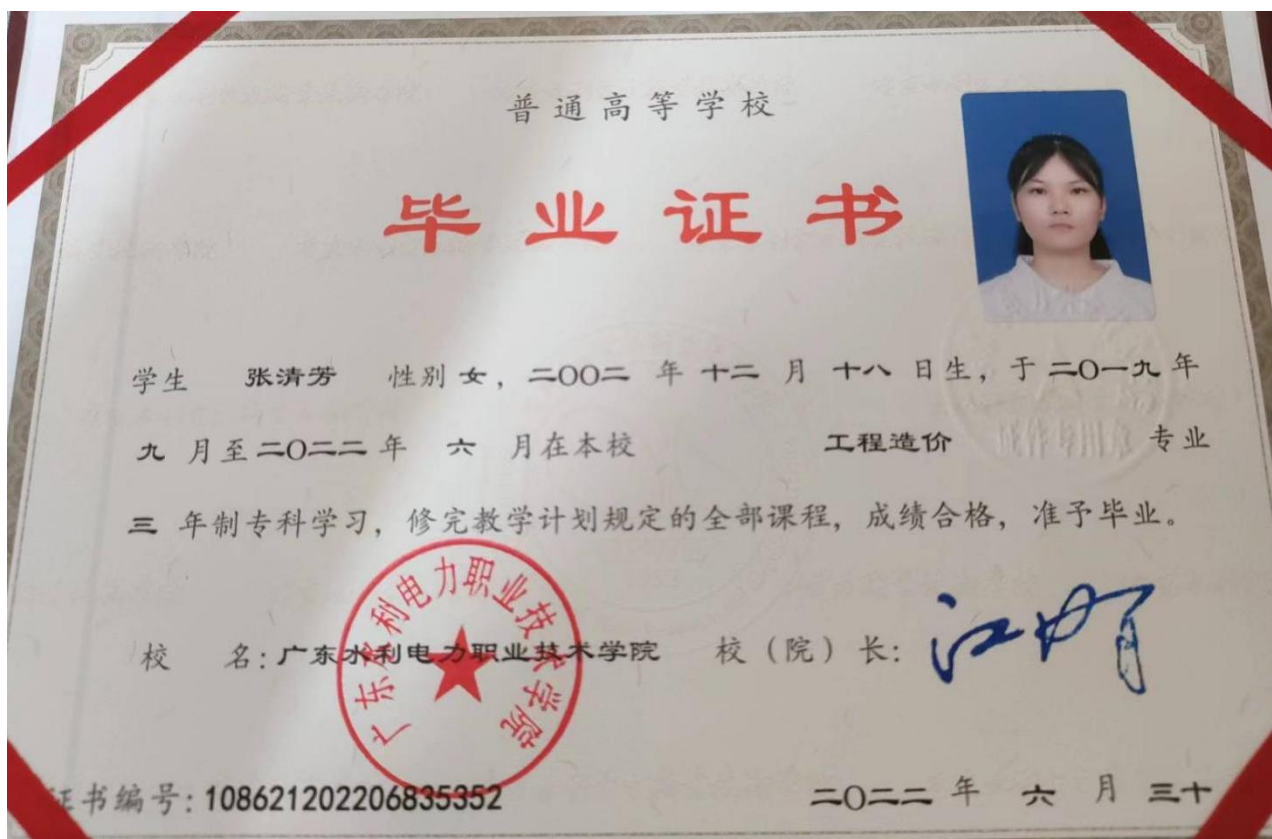 普通高等学校
毕业证书
学生 张清芳 性别 女，二〇〇二 年 十二 月 十八 日生，于 二〇一九 年
九 月至 二〇二二 年 六 月在本校 工程造价 专业
三 年制专科学习，修完教学计划规定的全部课程，成绩合格，准予毕业。
校 名：广东水利电力职业技术学院 校（院）长：
广东水利电力职业技术学院
证书编号：108621202206835352 二〇二二 年 六 月 三十